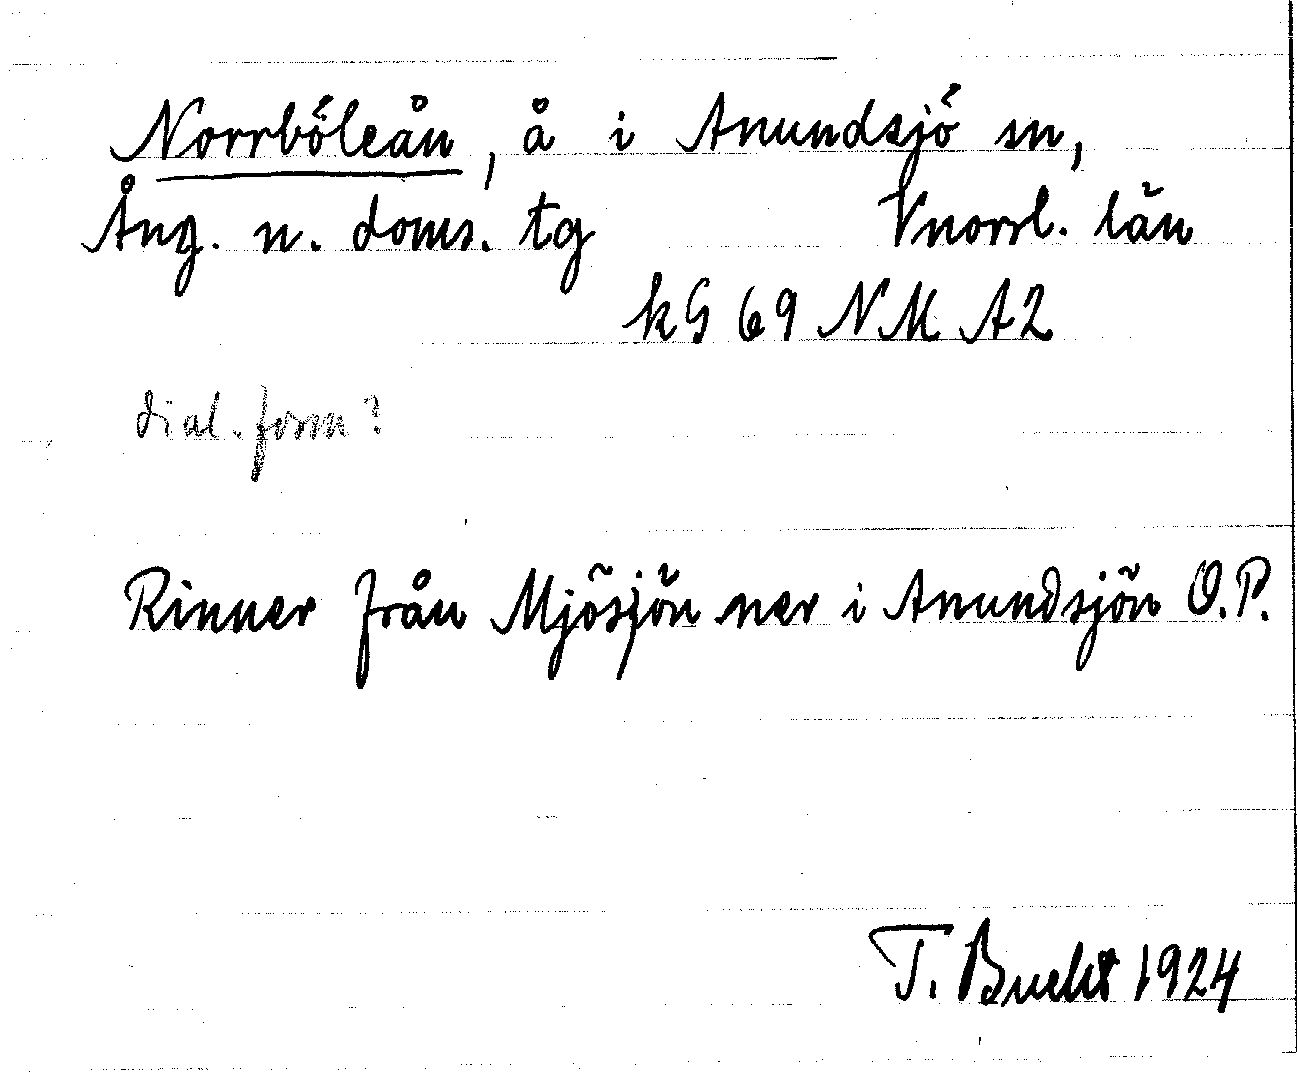 Norrböleån, å i Anundsjö sn,
Ång. n. doms. tg Vnorrl. län
kG 69 NM A2
dial. form?
Rinner från Mjösjön ner i Anundsjön O.P.
T. Bucht 1924